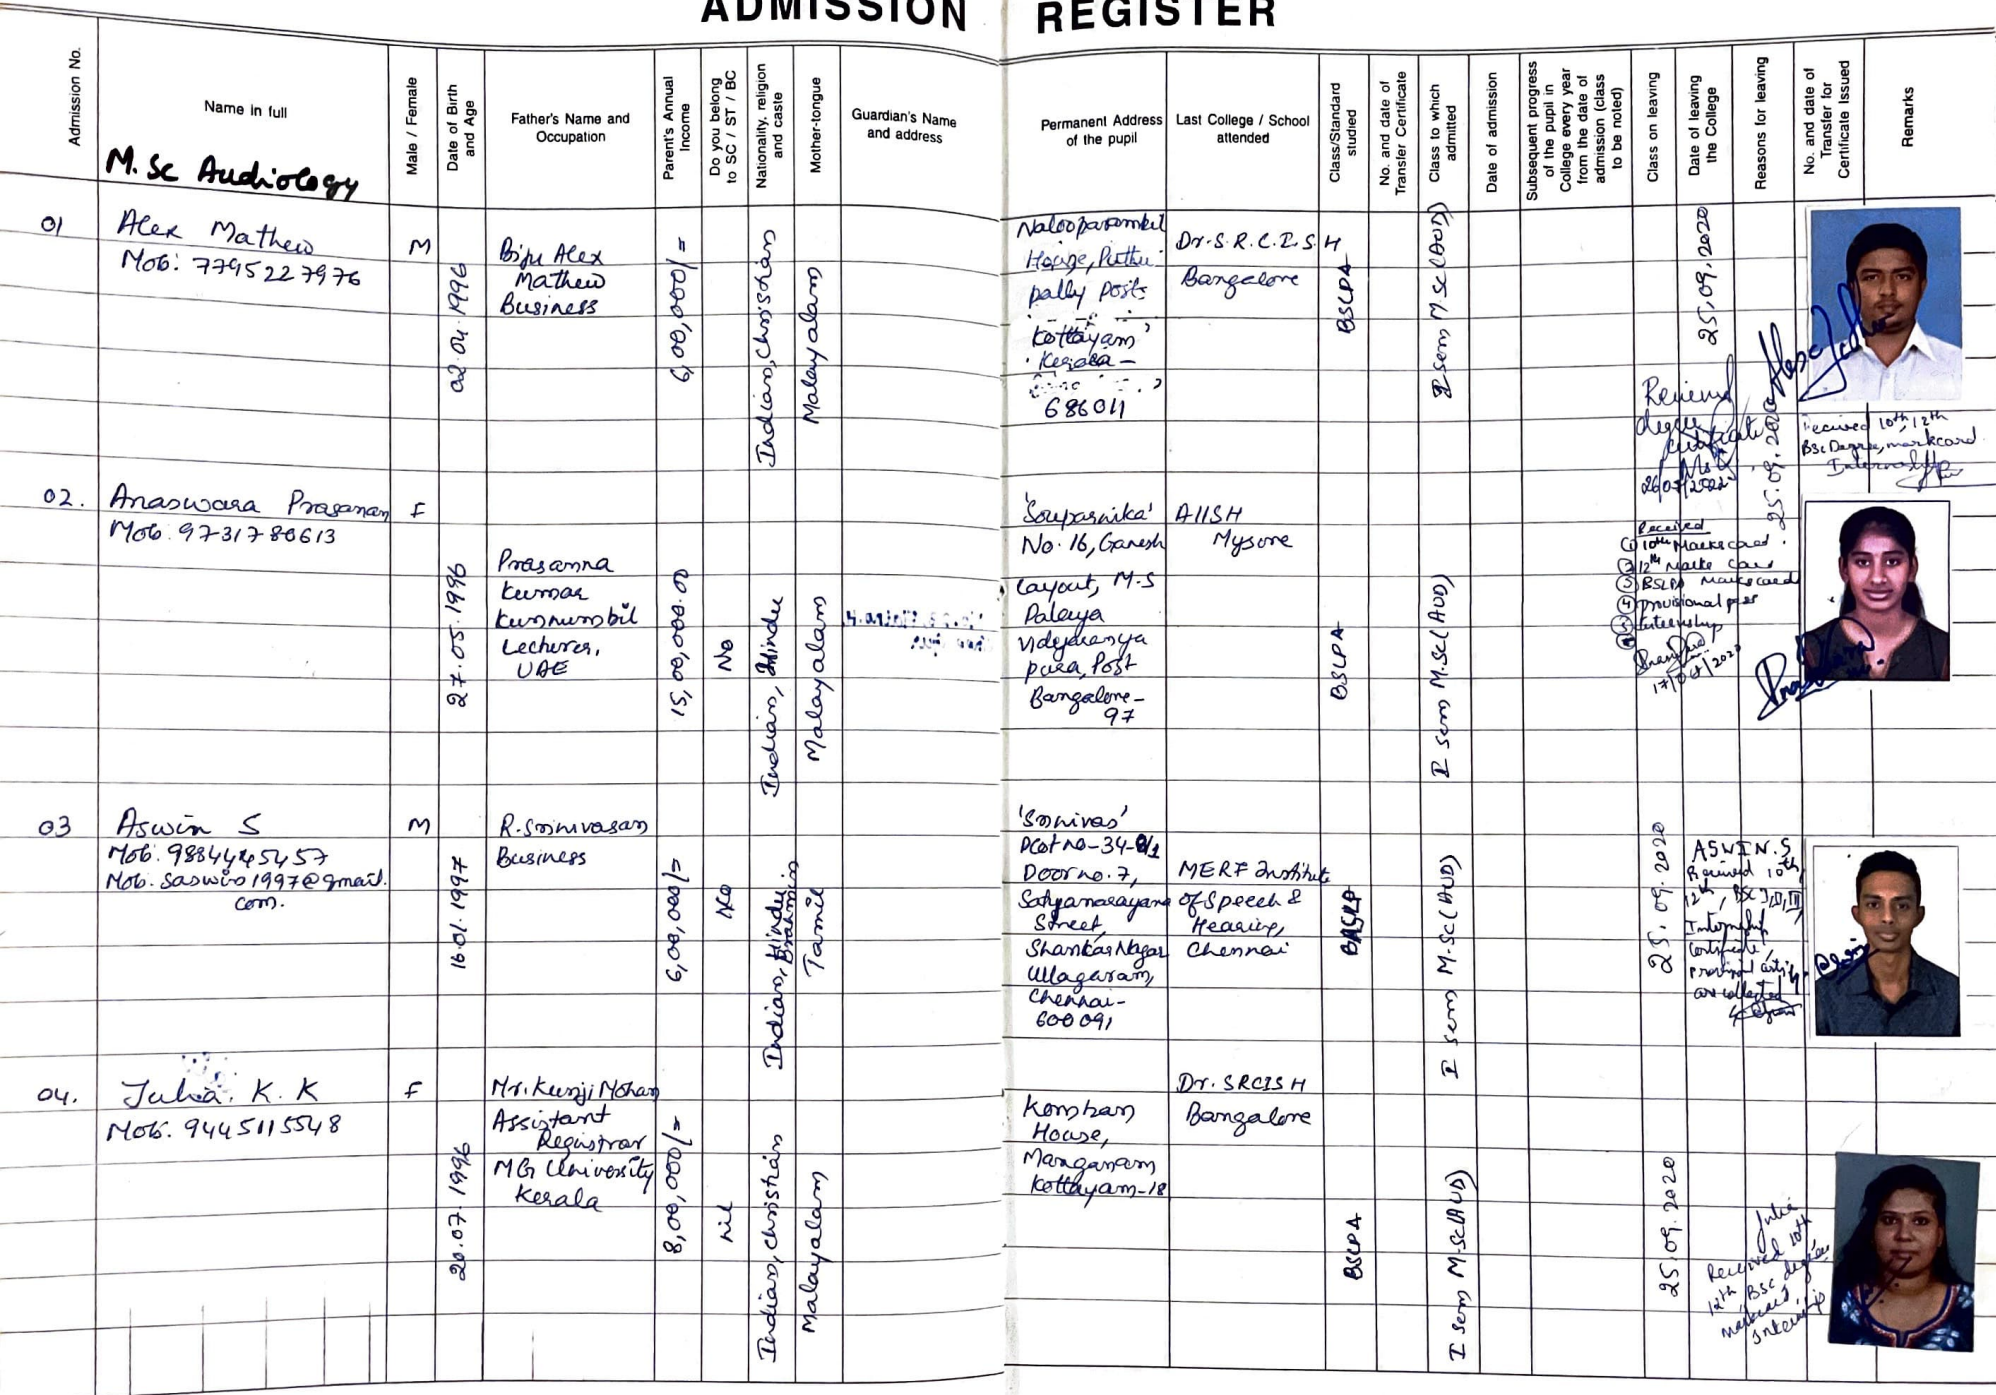 ADMISSION REGISTER
Admission No.
Name in full
Male / Female
Date of Birth and Age
Father's Name and Occupation
Parent's Annual Income
Do you belong to SC / ST / BC
Nationality, religion and caste
Mother-tongue
Guardian's Name and address
Permanent Address of the pupil
Last College / School attended
Class/Standard studied
No. and date of Transfer Certificate
Class to which admitted
Date of admission
Subsequent progress of the pupil in College every year from the date of admission (class to be noted)
Class on leaving
Date of leaving the College
Reasons for leaving
No. and date of Transfer for Certificate Issued
Remarks
M.Sc Audiology
01
Alex Mathew
Mob: 7795227976
M
02.04.1996
Biju Alex
Mathew
Business
6,00,000/=
Indian, Christian
Malayalam
House, Puthu
pally Post
Kottayam
Kerala -
686011
Dr. S.R.C.I.S.H
Bangalore
BSLPA
I sem M.Sc(AUD)
25.09.2020
Received
degree
certificate
Received 10th, 12th
BSc Degree, markcard
02.
Anaswara Prasanan
Mob: 9731780613
F
27.05.1996
Prasanna
Kumar
Kunnumbil
Lecturer,
UAE
15,00,000.00
No
Indian, Hindu
Malayalam
'Souparnika'
No. 16, Ganesh
Layout, M.S
Palaya
Vidyaranya
pura, Post
Bangalore-
97
AIISH
Mysore
BSLPA
I sem M.Sc(AUD)
25.09.2020
Received
① 10th Marks card.
② 12th Marks card
③ BSLPA Markscard
④ provisional pass
⑤ Internship
03
Aswin S
Mob. 9884445457
Mob. saswin1997@gmail.
com.
M
16.01.1997
R. Srinivasan
Business
6,00,000/=
No
Indian, Hindu
Brahmin
Tamil
'Srinivas'
Plot no-34-
Door no. 7,
Satyanarayana
Street,
Shankar Nagar
Ullagaram,
Chennai-
600091
MERF Institute
of Speech &
Hearing,
Chennai
I sem M.Sc(AUD)
25.09.2020
ASWIN.S
Received 10th,
12th, BSc I,II,III
Internship
Certificate,
are collected
04.
Julia. K. K
Mob. 9445115548
F
20.07.1996
Mr. Kunji Mohan
Assistant
Registrar
MG University
Kerala
8,00,000/=
nil
Indian, Christian
Malayalam
House,
Manganam
Kottayam-18
Dr. SRCISH
Bangalore
BSLPA
I Sem M.Sc(AUD)
25.09.2020
Julia
Received 10th
12th, BSc degree
markcard,
Internship